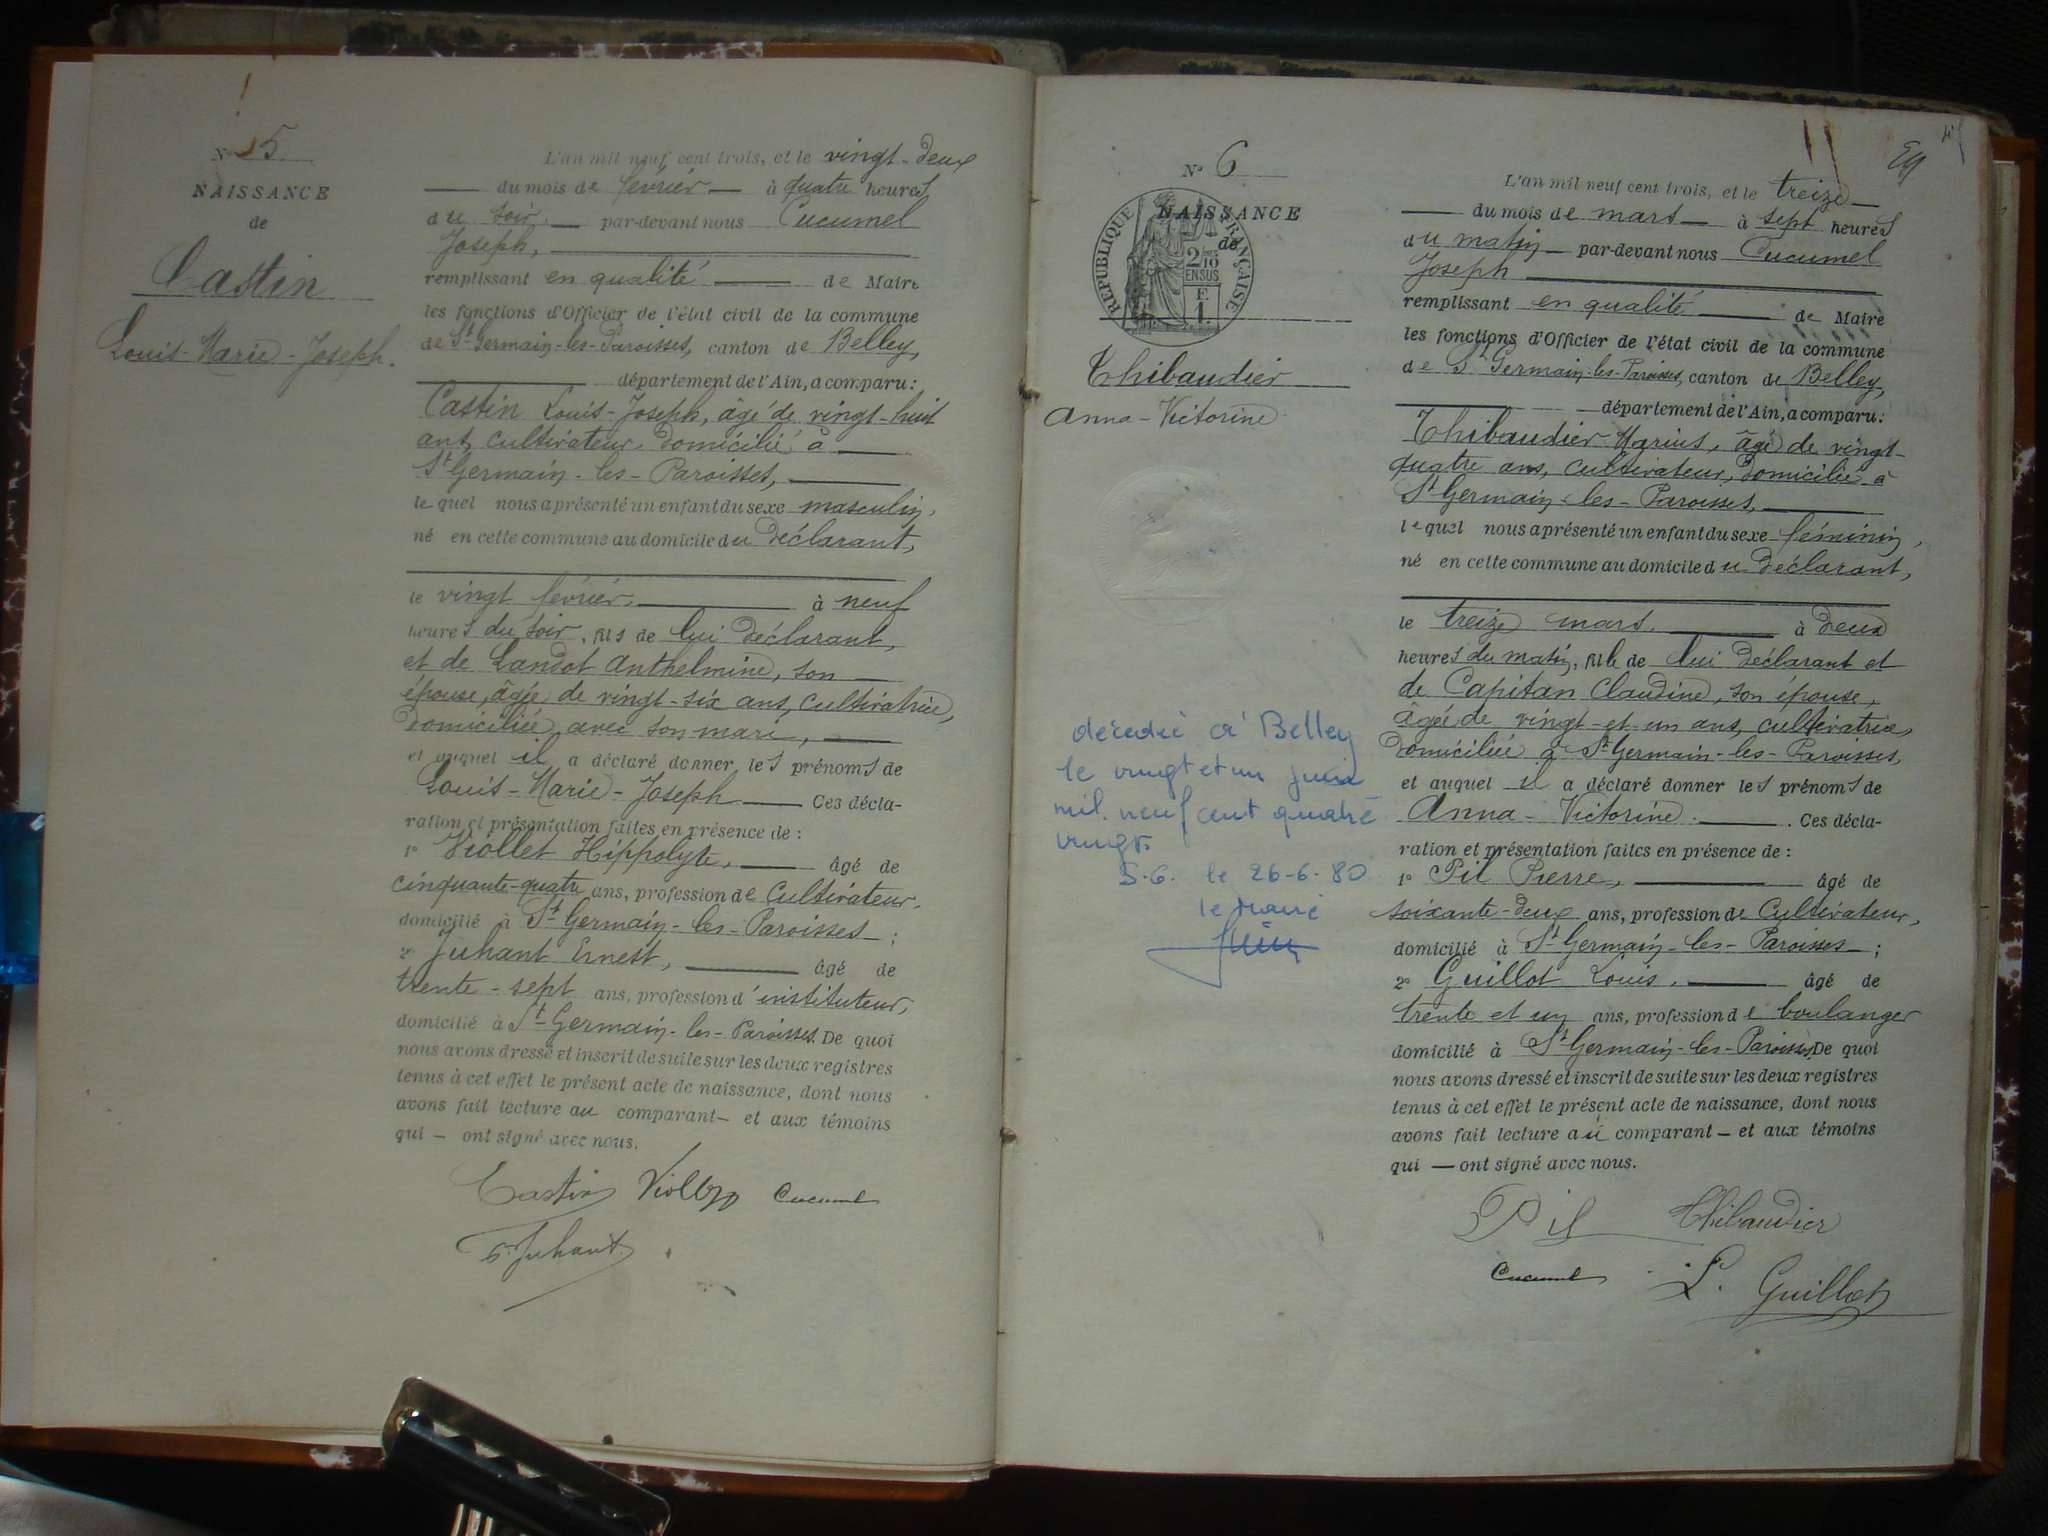 N° 5
NAISSANCE
de
Castin
Louis-Marie-Joseph.
L'an mil neuf cent trois, et le vingt-deux
du mois de février à quatre heures
du soir par-devant nous Cucumel
Joseph,
remplissant en qualité de Maire
les fonctions d'Officier de l'état civil de la commune
de St Germain-les-Paroisses, canton de Belley,
département de l'Ain, a comparu:
Castin Louis-Joseph, âgé de vingt-huit
ans, cultivateur, domicilié à
St Germain-les-Paroisses,
lequel nous a présenté un enfant du sexe masculin,
né en cette commune au domicile du déclarant,
le vingt février, à neuf
heures du soir, fils de lui déclarant,
et de Landot Anthelmine, son
épouse, âgée de vingt-six ans, cultivatrice,
domiciliée avec son mari,
et auquel il a déclaré donner les prénoms de
Louis-Marie-Joseph Ces décla-
ration et présentation faites en présence de :
1° Viollet Hippolyte, âgé de
cinquante-quatre ans, profession de cultivateur,
domicilié à St Germain-les-Paroisses ;
2° Juhant Ernest, âgé de
trente-sept ans, profession d'instituteur,
domicilié à St Germain-les-Paroisses. De quoi
nous avons dressé et inscrit de suite sur les deux registres
tenus à cet effet le présent acte de naissance, dont nous
avons fait lecture au comparant - et aux témoins
qui - ont signé avec nous.
Castin Viollet Cucumel
E. Juhant
N° 6
NAISSANCE
de
RÉPUBLIQUE FRANÇAISE
2/10
EN SUS
F.
1.
Thibaudier
Anna-Victorine
décédée à Belley
le vingt et un juin
mil neuf cent quatre
vingt.
S.G. le 26-6-80
le Maire
L'an mil neuf cent trois, et le treize
du mois de mars à sept heures
du matin par-devant nous Cucumel
Joseph
remplissant en qualité de Maire
les fonctions d'Officier de l'état civil de la commune
de St Germain-les-Paroisses, canton de Belley,
département de l'Ain, a comparu:
Thibaudier Marius, âgé de vingt-
quatre ans, cultivateur, domicilié à
St Germain-les-Paroisses,
lequel nous a présenté un enfant du sexe féminin,
né en cette commune au domicile du déclarant,
le treize mars à deux
heures du matin, fille de lui déclarant et
de Capitan Claudine, son épouse,
âgée de vingt-et-un ans, cultivatrice,
domiciliée à St Germain-les-Paroisses,
et auquel il a déclaré donner les prénoms de
Anna-Victorine. Ces décla-
ration et présentation faites en présence de :
1° Pil Pierre, âgé de
soixante-deux ans, profession de cultivateur,
domicilié à St Germain-les-Paroisses ;
2° Guillot Louis, âgé de
trente et un ans, profession de boulanger
domicilié à St Germain-les-Paroisses. De quoi
nous avons dressé et inscrit de suite sur les deux registres
tenus à cet effet le présent acte de naissance, dont nous
avons fait lecture au comparant - et aux témoins
qui - ont signé avec nous.
Pil Thibaudier
Cucumel L. Guillot